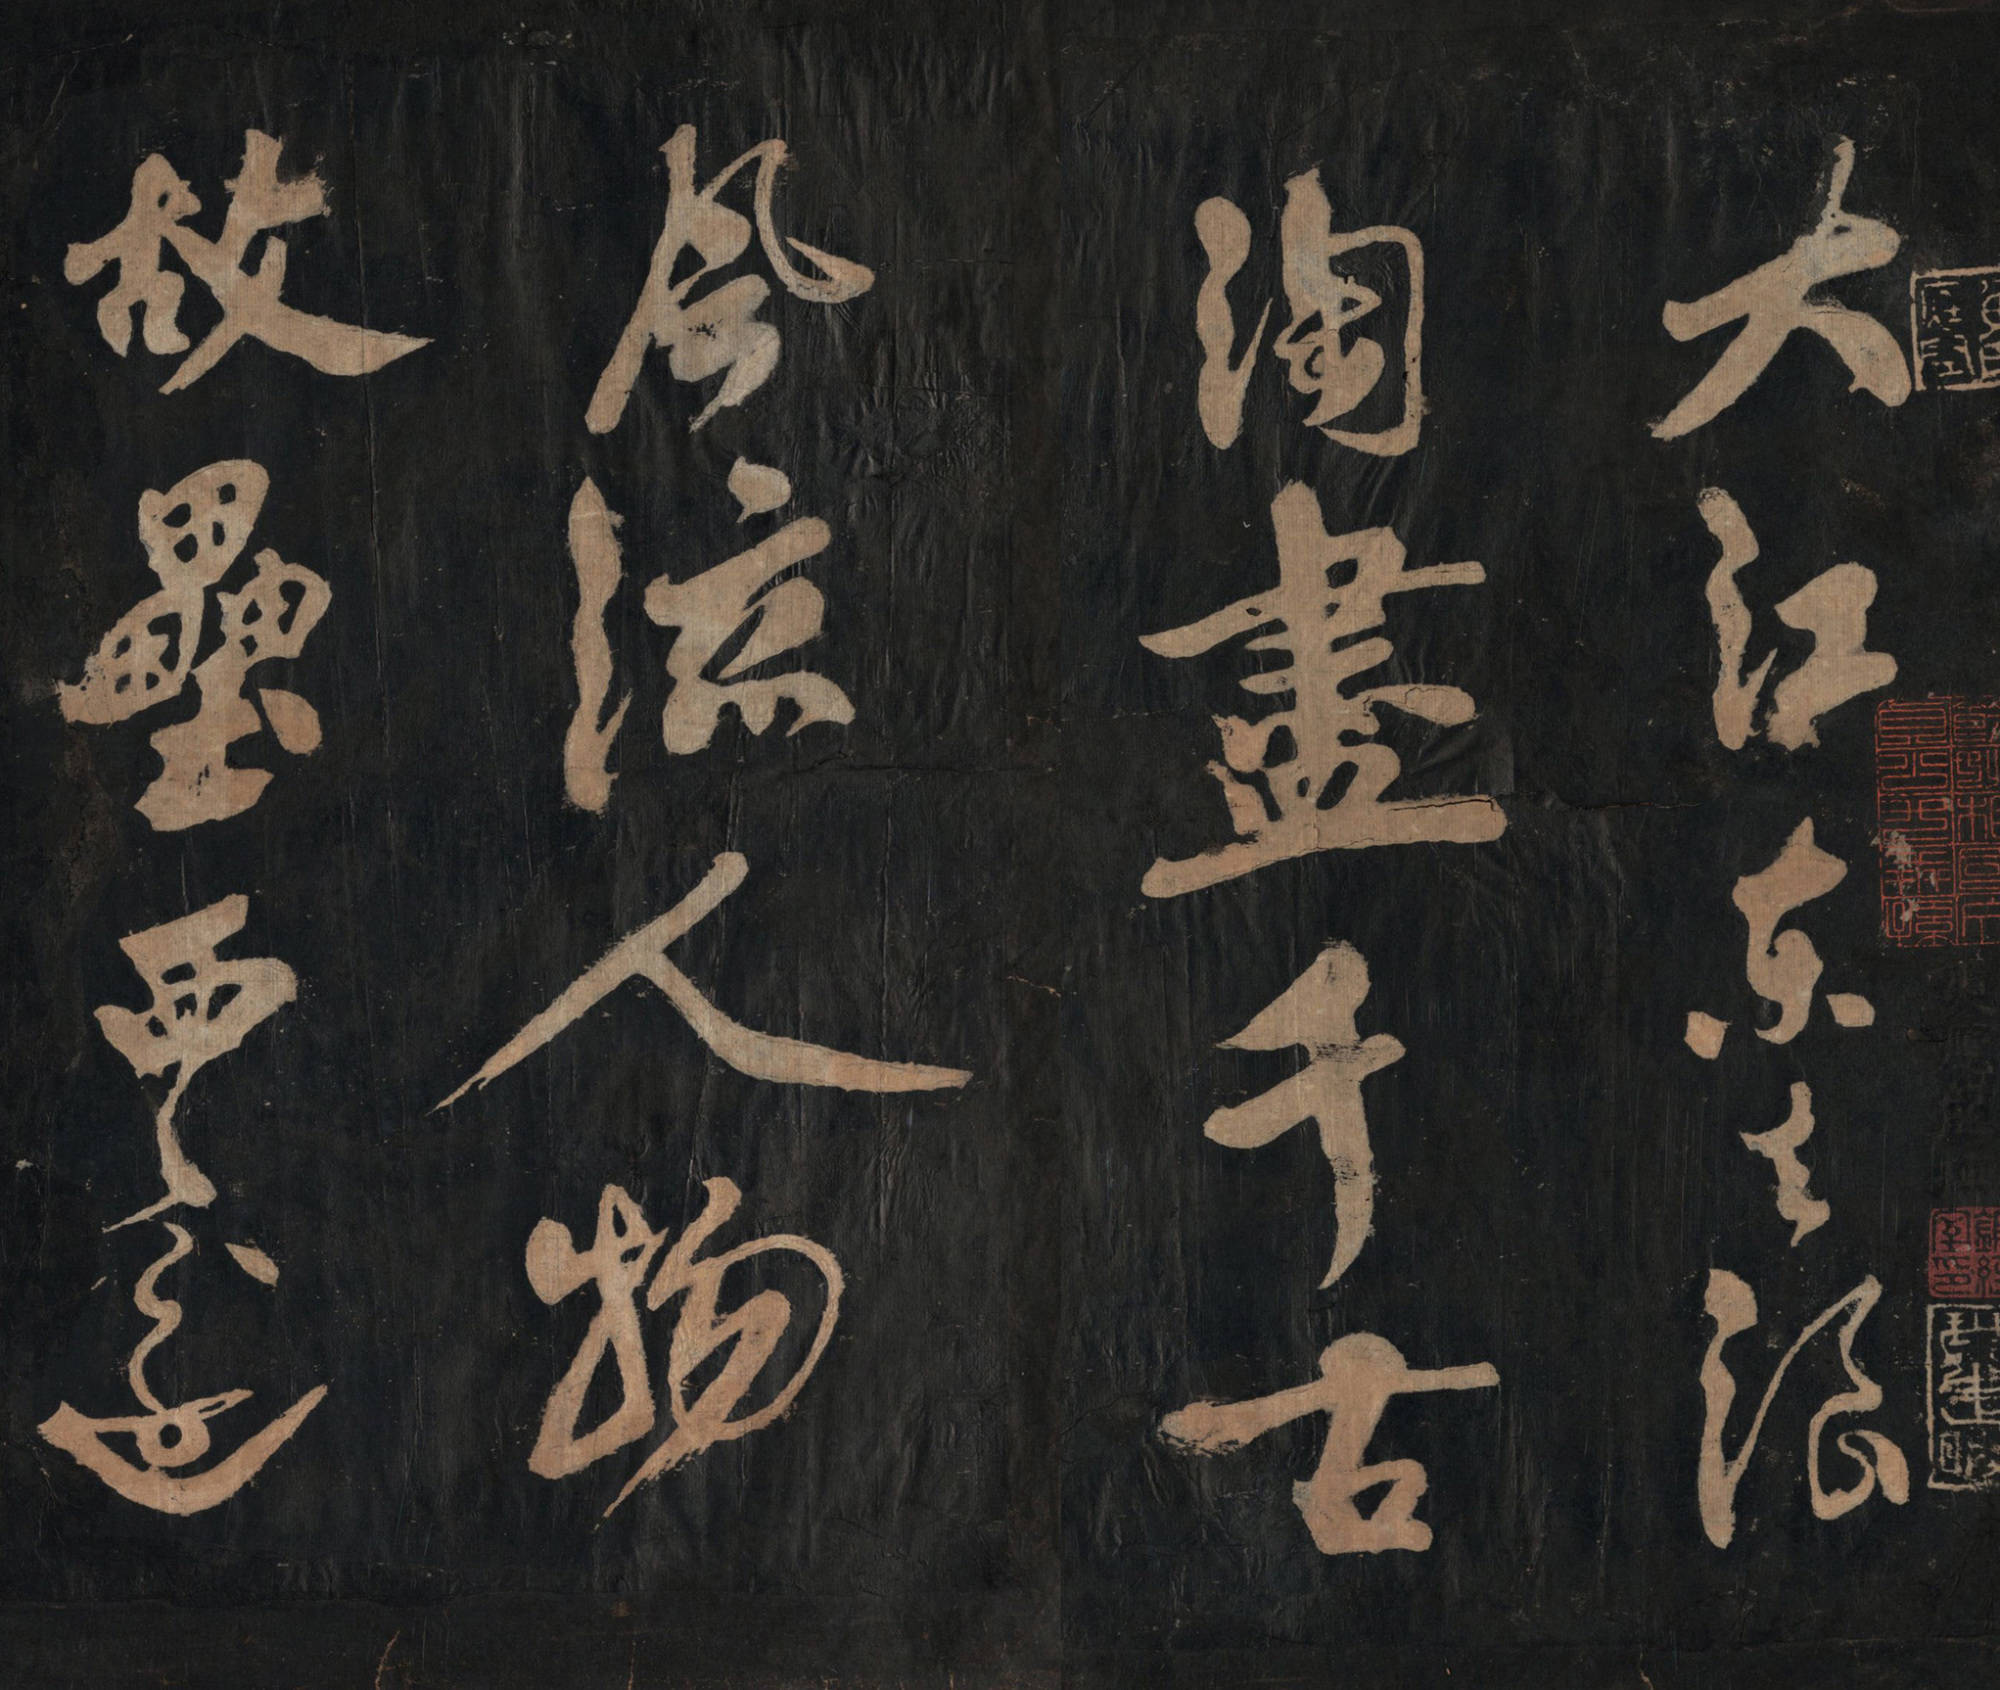 大江東去浪
淘盡千古
風流人物
故壘西邊